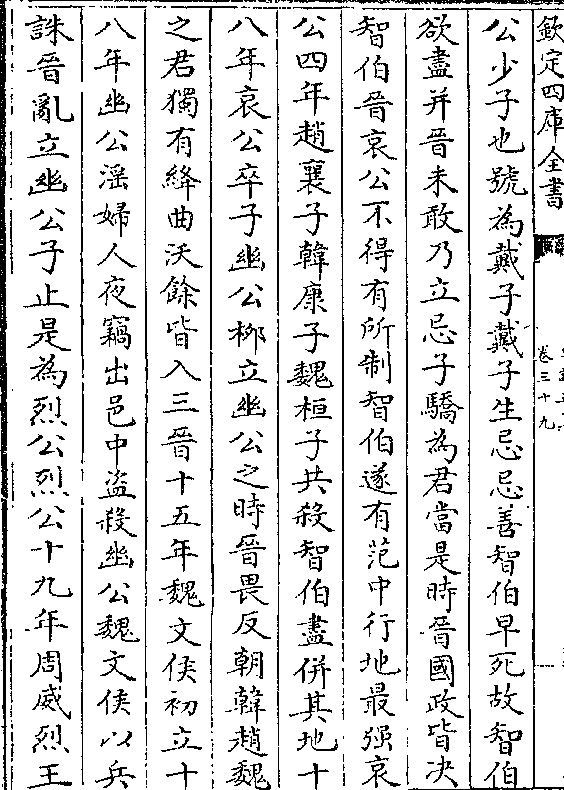 欽定四庫全書
卷三十九
公少子也號為戴子戴子生忌忌善智伯早死故智伯
欲盡并晉未敢乃立忌子驕為君當是時晉國政皆决
智伯晉哀公不得有所制智伯遂有范中行地最强哀
公四年趙襄子韓康子魏桓子共殺智伯盡併其地十
八年哀公卒子幽公柳立幽公之時晉畏反朝韓趙魏
之君獨有絳曲沃餘皆入三晉十五年魏文侯初立十
八年幽公淫婦人夜竊出邑中盗殺幽公魏文侯以兵
誅晉亂立幽公子止是為烈公烈公十九年周威烈王